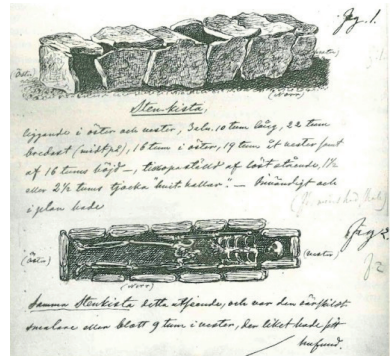 Fig. 1.
(Öster)
(vester)
(Norr)
Stenkista,
liggande i öster och vester, 3 eln. 10 tum lång, 22 tum
bredast (midt på), 16 tum i öster, 19 tum åt vester samt
af 16 tums höjd –, af löst stående, 1½
eller 2½ tums tjocka hällar. – Invändigt och
i plan hade
Fig 2.
(Öster)
(vester)
(Norr)
Samma Stenkista detta utseende, och var den särskildt
smalare eller blott 9 tum i vester, der liket hade sitt
hufvud.